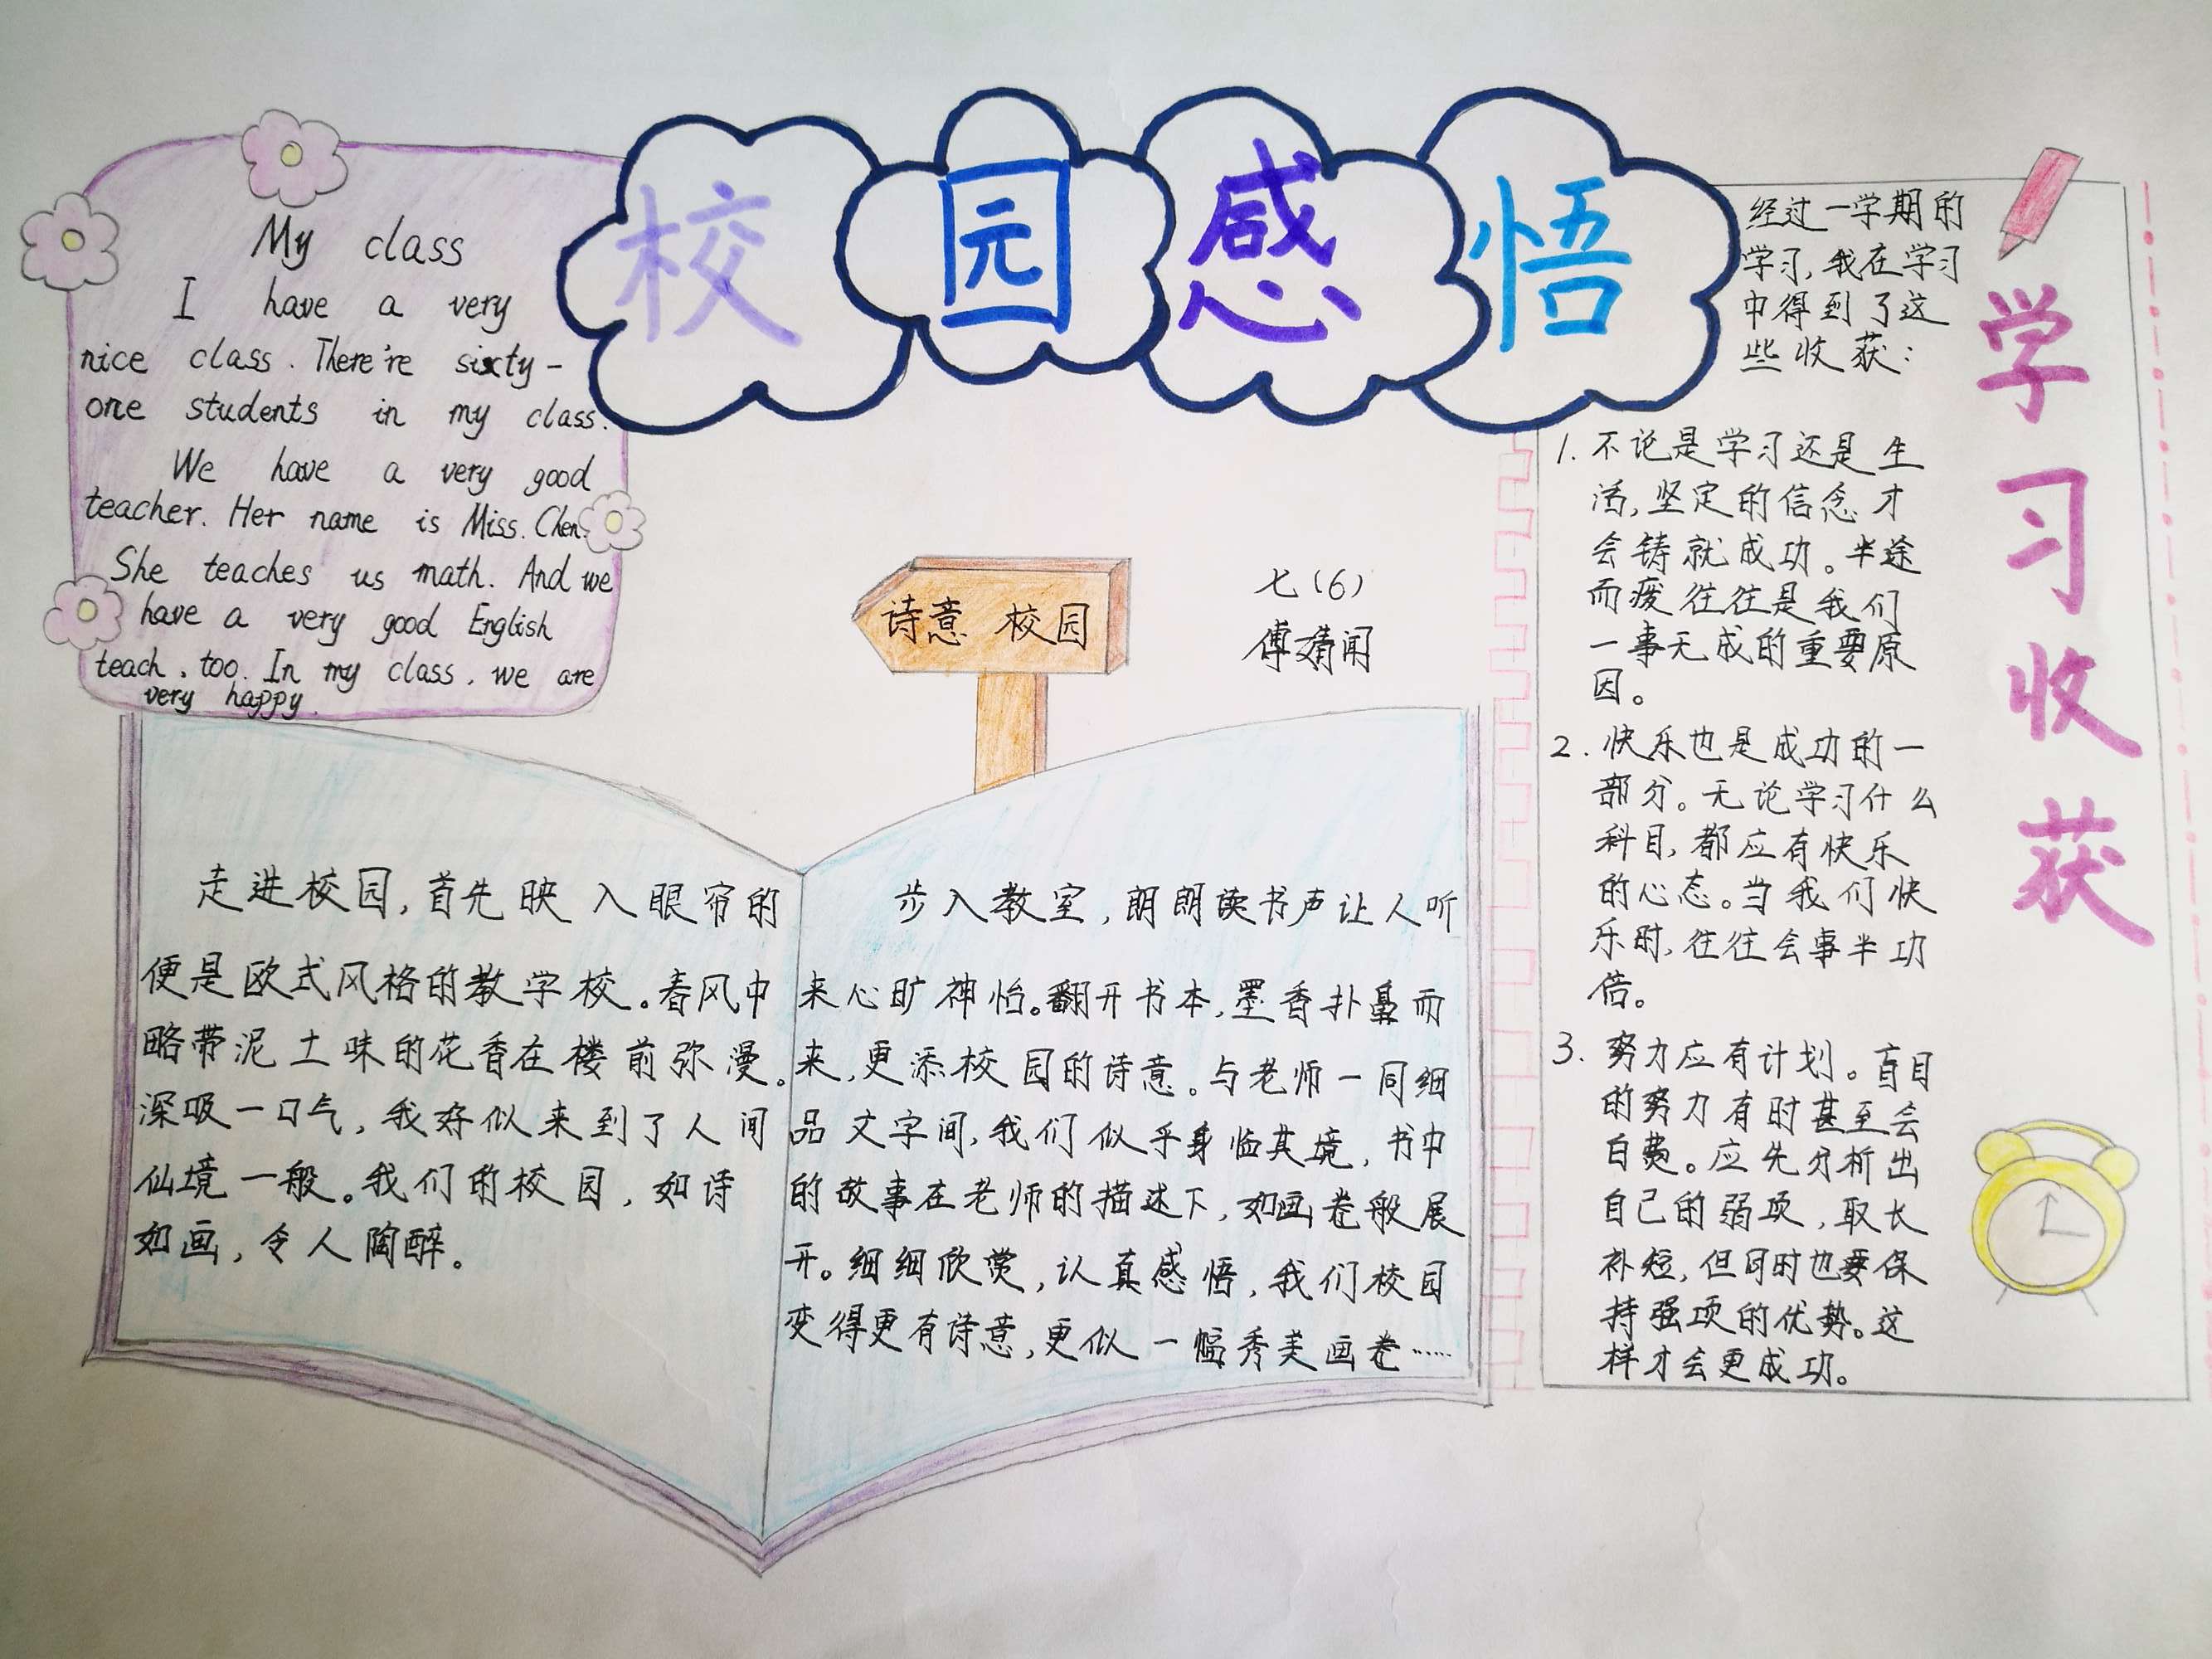 校园感悟
My class
I have a very
nice class. There're sixty-
one students in my class.
We have a very good
teacher. Her name is Miss. Chen.
She teaches us math. And we
have a very good English
teach, too. In my class, we are
very happy.
诗意 校园
七(6)
傅婧闻
走进校园,首先映入眼帘的
便是欧式风格的教学校。春风中
略带泥土味的花香在楼前弥漫。
深吸一口气,我好似来到了人间
仙境一般。我们的校园,如诗
如画,令人陶醉。
步入教室,朗朗读书声让人听
来心旷神怡。翻开书本,墨香扑鼻而
来,更添校园的诗意。与老师一同细
品文字间,我们似乎身临其境,书中
的故事在老师的描述下,如画卷般展
开。细细欣赏,认真感悟,我们校园
变得更有诗意,更似一幅秀美画卷……
学习收获
经过一学期的
学习,我在学习
中得到了这
些收获:
1.不论是学习还是生
活,坚定的信念才
会铸就成功。半途
而废往往是我们
一事无成的重要原
因。
2.快乐也是成功的一
部分。无论学习什么
科目,都应有快乐
的心态。当我们快
乐时,往往会事半功
倍。
3.努力应有计划。盲目
的努力有时甚至会
白费。应先分析出
自己的弱项,取长
补短,但同时也要保
持强项的优势。这
样才会更成功。